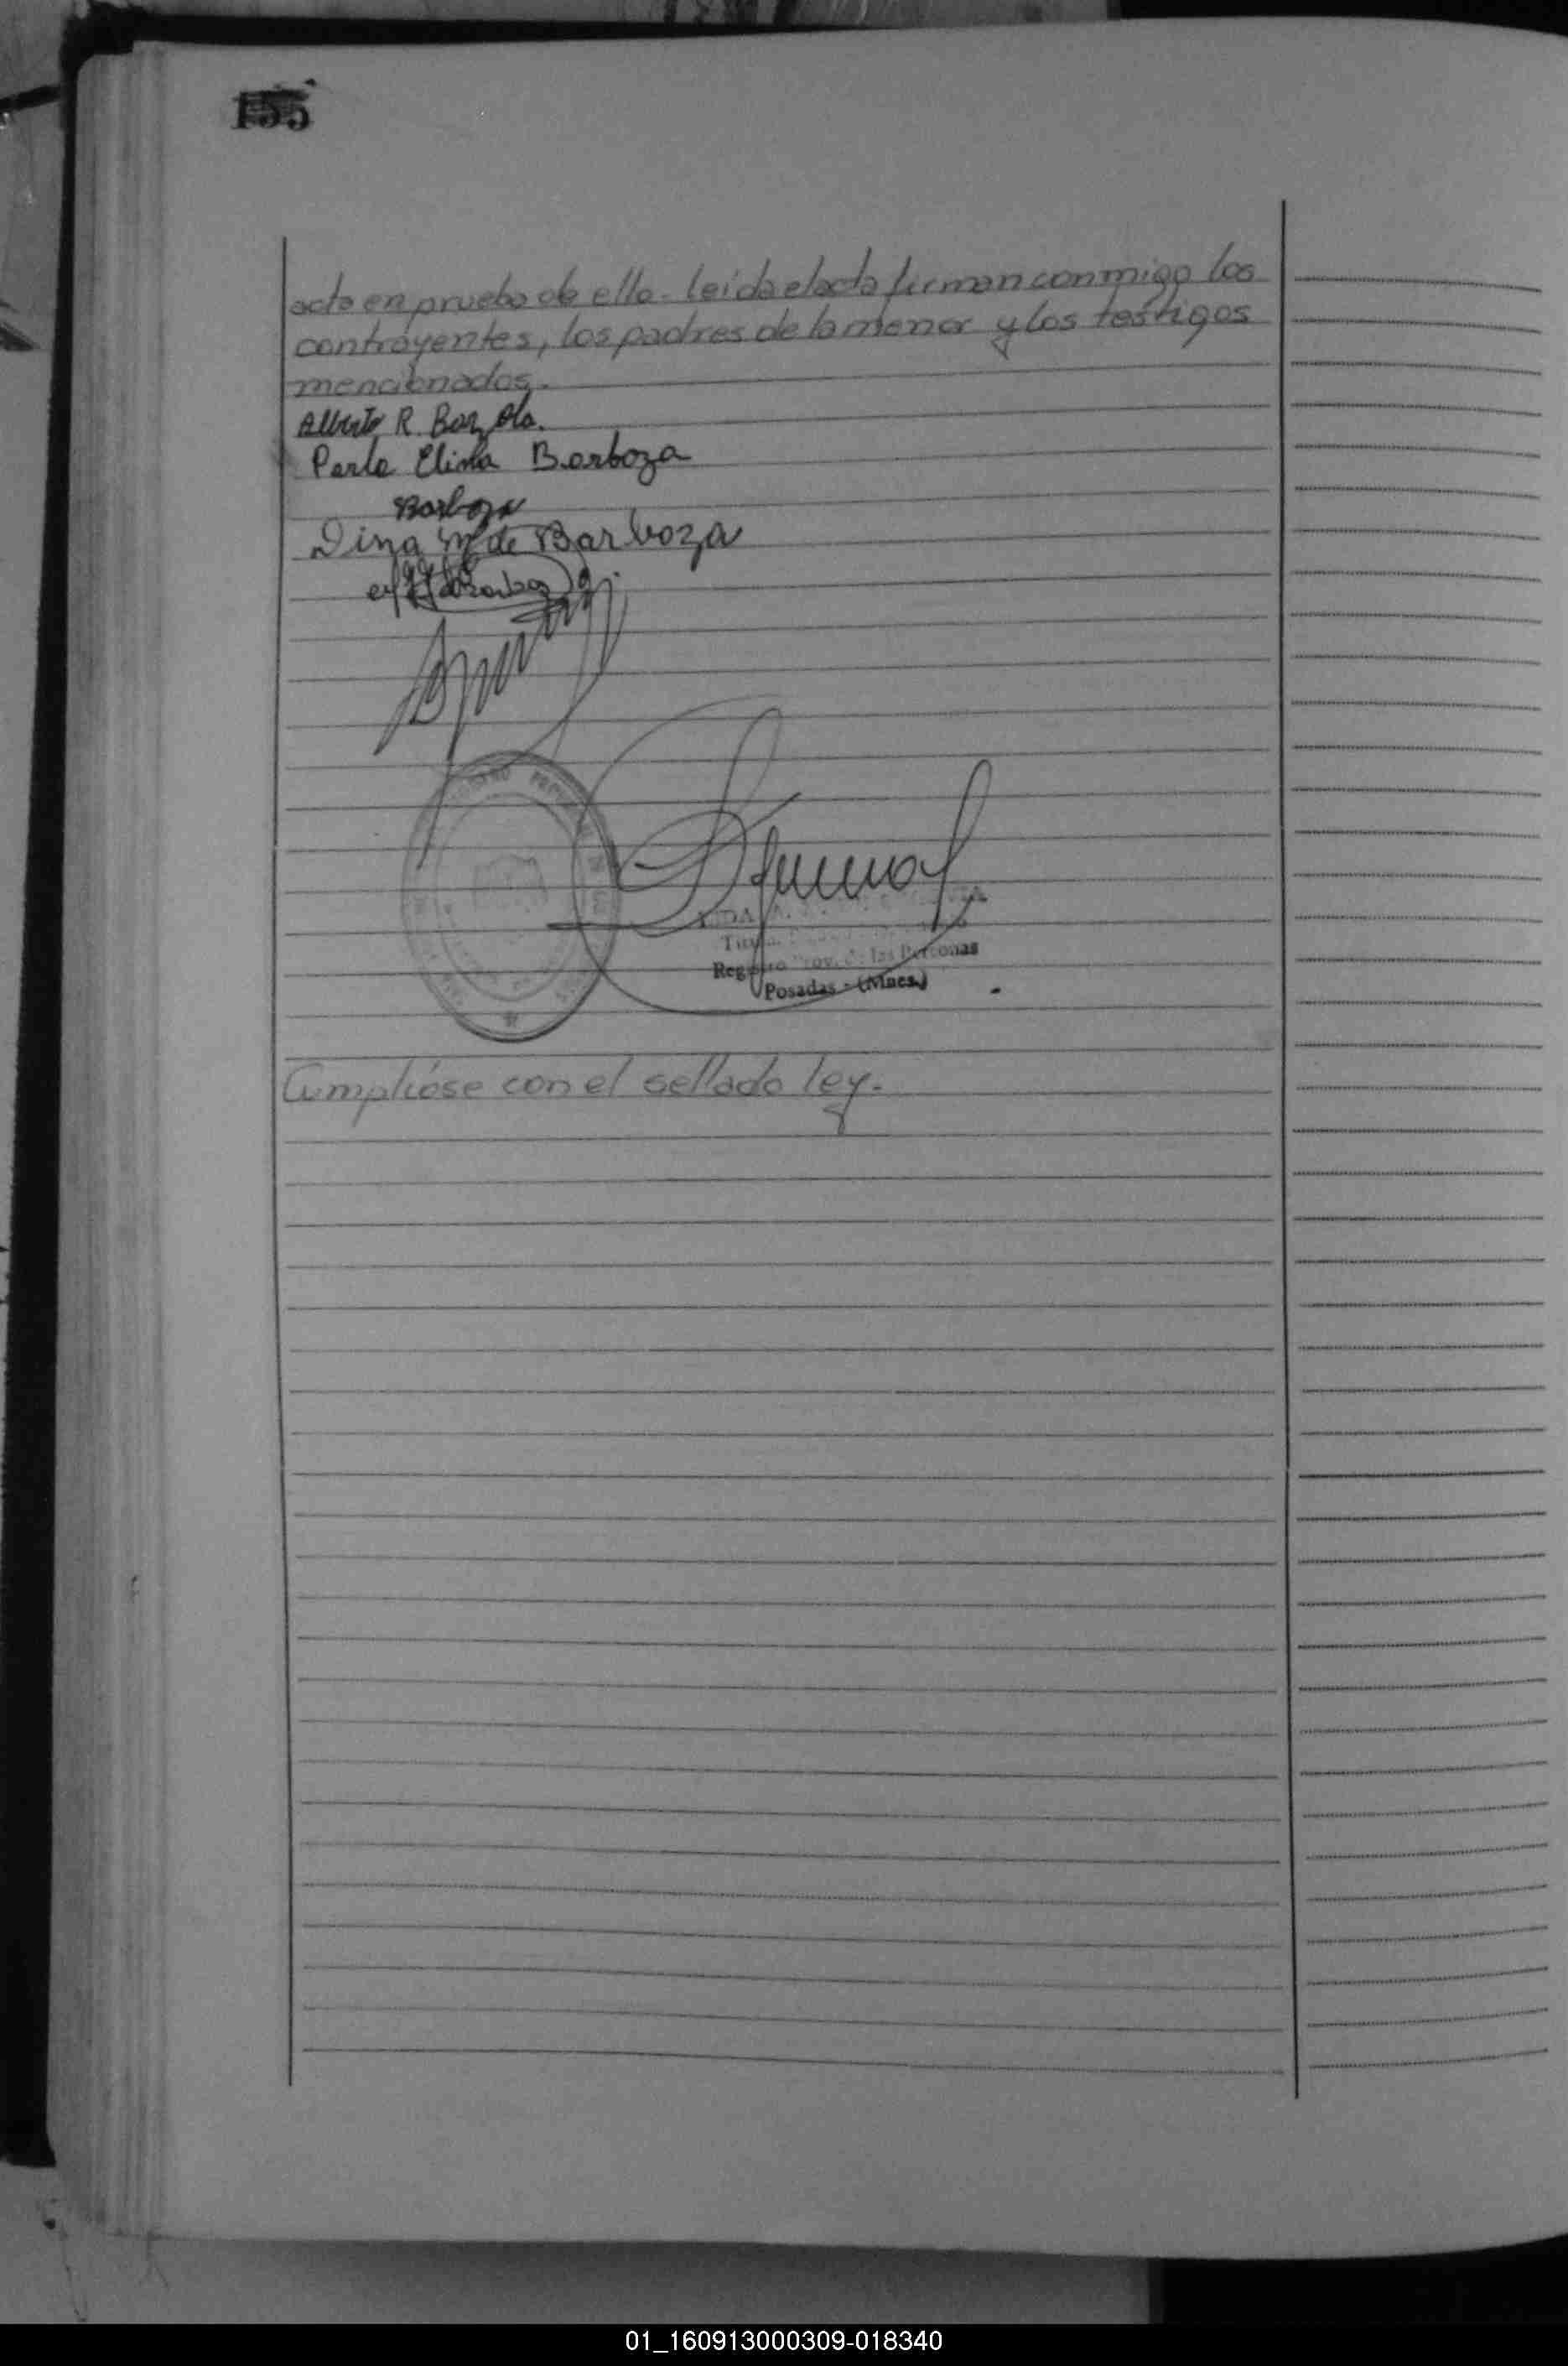 155
acta en prueba de ello. Leída el acta firman conmigo los
contrayentes, los padres de la menor y los testigos
mencionados.
Alberto R.
Perla Elina Barboza
Barboza
Dina M de Barboza
Registro Prov. de las Personas
Posadas - (Mnes.)
Cumplióse con el sellado ley.
01_160913000309-018340